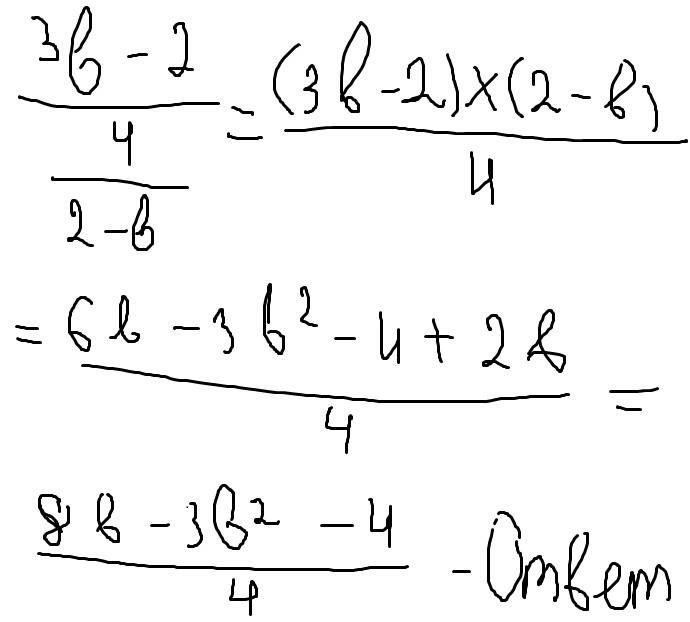 3b - 2
4
2 - b
= (3b - 2) × (2 - b)
4
= 6b - 3b² - 4 + 2b
4
=
8b - 3b² - 4
4
- Ответ